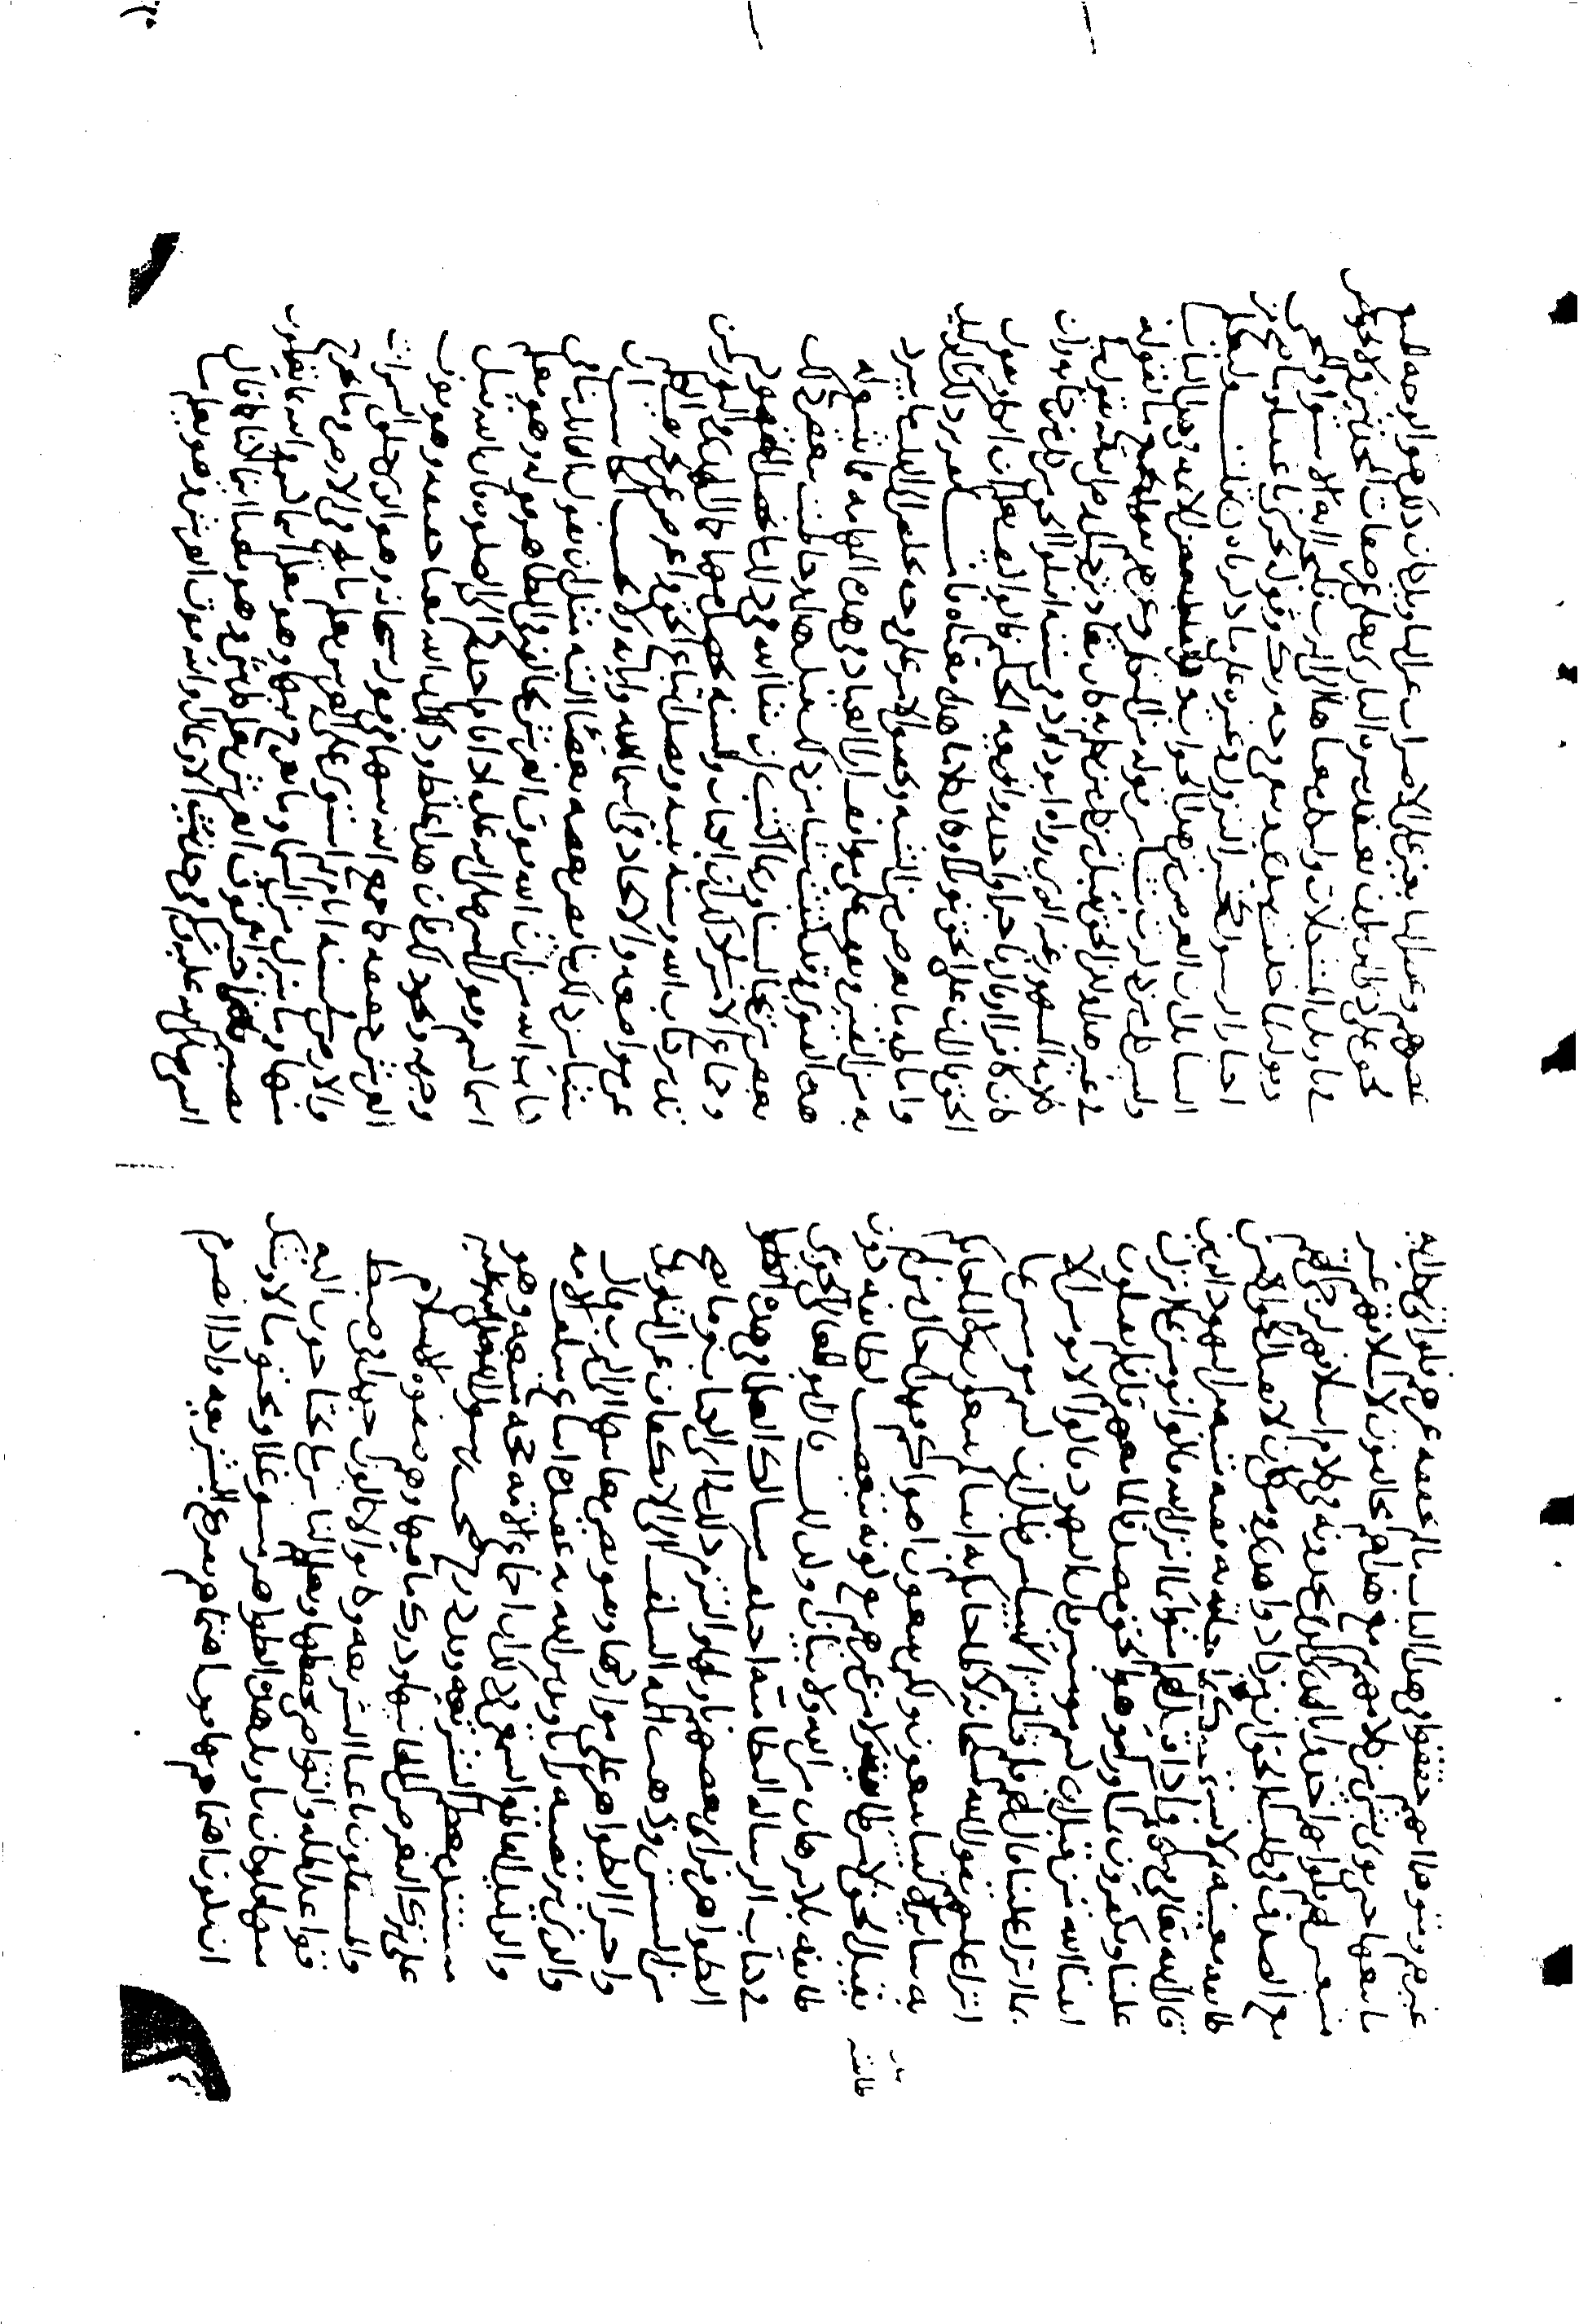 غيرهم وتوهما انهم حققوا في هذا الباب ما لم يحققه غيرهم فلو اتي بكل اية
ما تبعها حتى يؤتى بشئ من كلامهم ثم هم مع هذا مخالفون لاسلافهم غير
متبعين لهم فلو انهم اخذوا بالهدى الذي يجدونه في كلام اسلافهم لرجي لهم
مع الصدق في طلب الحق ان يزدادوا هدى ومن كان لا يقبل الحق الا من
طائفة معينة ثم لا يستمسك بما جاءت به ففيه شبه من اليهود الذين
قال الله تعالى فيهم واذا قيل لهم امنوا بما انزل الله قالوا نومن بما انزل
علينا ويكفرون بما وراه وهو الحق مصدقا لما معهم قل فلم تقتلون
انبيا الله من قبل ان كنتم مومنين فان اليهود قالوا لا نومن الا
بما انزل علينا قال الله لهم فلم قتلتم الانبيا من قبل ان كنتم مومنين بما
انزل عليكم يقول الله سبحانه لا لما جاتكم به انبياكم تتبعون ولا لما جاتكم
به ساير الانبيا تتبعون ولكن تتبعون اهواكم فهذا حال من لم
يقبل الحق لا من طائفته ولا من غيرهم مع كونه يتعصب لطائفة دون
طائفة بلا برهان من الله ولا بيان وكذلك قال ابو المعالي الجويني
في كتاب الرسالة النظامية اختلف مسالك العلما في هذه الظواهر
فراى بعضهم تاويلها والتزم ذلك في اي الكتاب وما يصح
من السنن وذهب ائمة السلف الى الانكفاف عن التاويل
واجرا الظواهر على مواردها وتفويض معانيها الى الرب قال
والذي نرتضيه رايا وندين الله به عقدا اتباع سلف الامة
والدليل القاطع السمعي في ذلك ان اجماع الامة حجة متبعة وهو
مستند معظم الشريعة وقد درج صحب رسول الله صلى الله عليه وسلم
على ترك التعرض لمعانيها ودرك ما فيها وهم صفوة الاسلام
والمستقلون باعبا الشريعة وكانوا لا يالون جهدا في ضبط
قواعد الملة والتواصي بحفظها وتعليم الناس ما يحتاجون اليه
منها فلو كان تاويل هذه الظواهر مسوغا او محتوما لاوشك
ان يكون اهتمامهم بها فوق اهتمامهم بفروع الشريعة واذا انصرم
عصرهم وعصر التابعين على الاضراب عن التاويل كان ذلك هو الوجه المتبع
فحق على ذي الدين ان يعتقد تنزه الباري تعالى عن صفات المحدثين ولا يخوض
في تاويل المشكلات ويكل معناها الى الرب فليجر اية الاستوا والمجي
وقوله لما خلقت بيدي ويبقى وجه ربك وقوله تجري باعيننا وما صح من
اخبار الرسول كخبر النزول وغيره على ما ذكرناه قلت وليعلم
السائل ان الغرض من هذا الجواب ذكر الفاظ بعض الائمة في هذا الباب
وليس كل من ذكرنا شيئا من قوله من المتكلمين وغيرهم نقول بجميع ما يقوله
في غير هذا ولكن الحق يقبل من كل من تكلم به وكان معاذ بن جبل يقول في
كلامه المشهور عنه الذي رواه ابو داود في سننه اقبلوا الحق من كل من جا به وان
كان كافرا او قال فاجرا واحذروا زيغة الحكيم قالوا كيف نعلم ان الكافر يقول
الحق قال ان على الحق نورا او كلاما هذا معناه فاما تقرير ذلك بالدليل
واماطة ما يعرض من الشبه وتحقيق الامر على وجه يخلص الى القلب ما يبرد
به من اليقين ويقف على مواقف ارا العباد في هذه المهامه فما تتسع له
هذه الفتوى وقد كتبت شيئا من ذلك قبل هذا وخاطبت ببعض ذلك
بعض من يجالسنا وربما اكتب ان شا الله في ذلك ما يحصل المقصود
وجماع الامر في ذلك ان الكتاب والسنة يحصل منهما كمال الهدى والنور لمن
تدبر كتاب الله وسنة نبيه وقصد اتباع الحق واعرض عن تحريف الكلم
عن مواضعه والالحاد في اسما الله واياته ولا يحسب الحاسب ان
شيئا من ذلك يناقض بعضه بعضا البتة مثل ان يقول القائل ما في
كتاب الله من ان الله فوق العرش يخالفه في الظاهر قوله وهو معكم
اينما كنتم وقوله النبي صلى الله عليه وسلم اذا قام احدكم الى الصلوة فان الله قبل
وجهه ونحو ذلك فان هذا غلط وذلك ان الله معنا حقيقة وهو فوق
العرش حقيقة كما جمع الله بينهما في قوله سبحانه وهو الذي خلق السموات
والارض في ستة ايام ثم استوى على العرش يعلم ما يلج في الارض وما يخرج
منها وما ينزل من السما وما يعرج فيها وهو معكم اينما كنتم والله بما تعملون
بصير فاخبر انه فوق العرش يعلم كل شئ وهو معنا اينما كنا كما قال
النبي صلى الله عليه وسلم في حديث الاوعال والله فوق العرش وهو يعلم ما